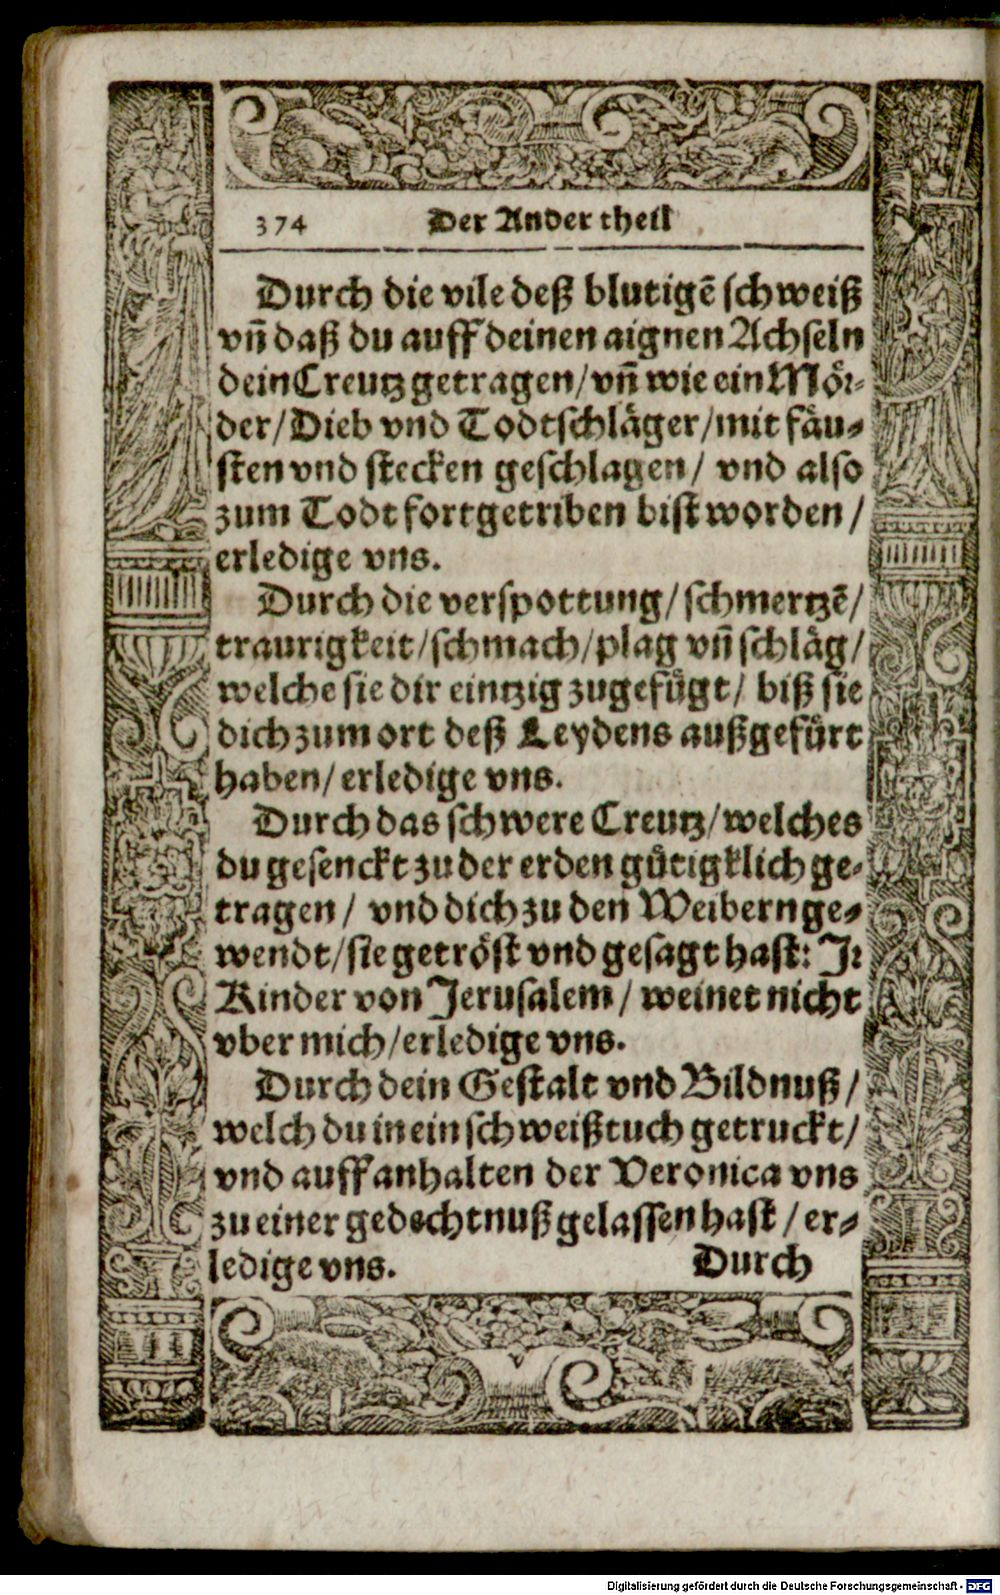 374 Der Ander theil
Durch die vile deß blutigẽ schweiß
vñ daß du auff deinen aignen Achseln
dein Creutz getragen/ vñ wie ein Mör-
der/ Dieb vnd Todtschläger/ mit fäu-
sten vnd stecken geschlagen/ vnd also
zum Todt fortgetriben bist worden/
erledige vns.
Durch die verspottung/ schmertzẽ/
traurigkeit/ schmach/ plag vñ schläg/
welche sie dir eintzig zugefügt/ biß sie
dich zum ort deß Leydens außgefürt
haben/ erledige vns.
Durch das schwere Creutz/ welches
du gesenckt zu der erden gütigklich ge-
tragen/ vnd dich zu den Weibern ge-
wendt/ sie getröst vnd gesagt hast: Jr
Kinder von Jerusalem/ weinet nicht
vber mich/ erledige vns.
Durch dein Gestalt vnd Bildnuß/
welch du in ein schweißtuch getruckt/
vnd auff anhalten der Veronica vns
zu einer gedechtnuß gelassen hast/ er-
ledige vns. Durch
Digitalisierung gefördert durch die Deutsche Forschungsgemeinschaft - DFG